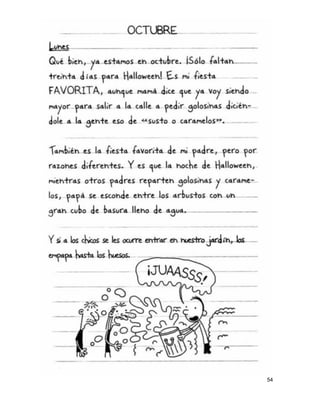 OCTUBRE
Lunes
Qué bien, ya estamos en octubre. ¡Sólo faltan
treinta días para Halloween! Es mi fiesta
FAVORITA, aunque mamá dice que ya voy siendo
mayor para salir a la calle a pedir golosinas dicién-
dole a la gente eso de "susto o caramelos".
También es la fiesta favorita de mi padre, pero por
razones diferentes. Y es que la noche de Halloween,
mientras otros padres reparten golosinas y carame-
los, papá se esconde entre los arbustos con un
gran cubo de basura lleno de agua.
Y si a los chicos se les ocurre entrar en nuestro jardín, los
empapa hasta los huesos.
¡JUAASSS!
54